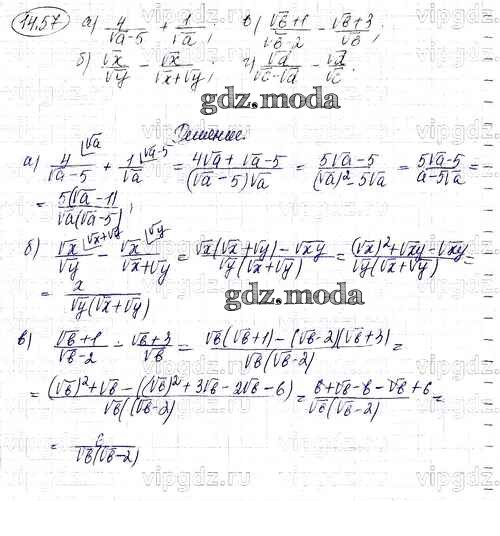 14.57 а) 4/(√a-5) + 1/√a; в) (√b+1)/(√b-2) - (√b+3)/√b;
б) √x/√y - √x/(√x+√y); г) √d/(√c-√d) - √d/√c;
gdz.moda
Решение.
а) 4/(√a-5) ⌊√a + 1/√a ⌊√a-5 = (4√a + √a-5)/((√a-5)√a) = (5√a-5)/((√a)²-5√a) = (5√a-5)/(a-5√a) =
= 5(√a-1)/(√a(√a-5));
б) √x/√y ⌊√x+√y - √x/(√x+√y) ⌊√y = (√x(√x+√y)-√xy)/(√y(√x+√y)) = ((√x)²+√xy-√xy)/(√y(√x+√y)) =
= x/(√y(√x+√y))
gdz.moda
в) (√b+1)/(√b-2) - (√b+3)/√b = (√b(√b+1)-(√b-2)(√b+3))/(√b(√b-2)) =
= ((√b)²+√b-((√b)²+3√b-2√b-6))/(√b((√b-2)) = (b+√b-b-√b+6)/(√b(√b-2)) =
= 6/(√b(√b-2))
vipgdz.ru vipgdz.ru vipgdz.ru